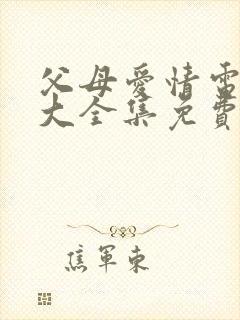 父母爱情電
大全集免費
焦軍東